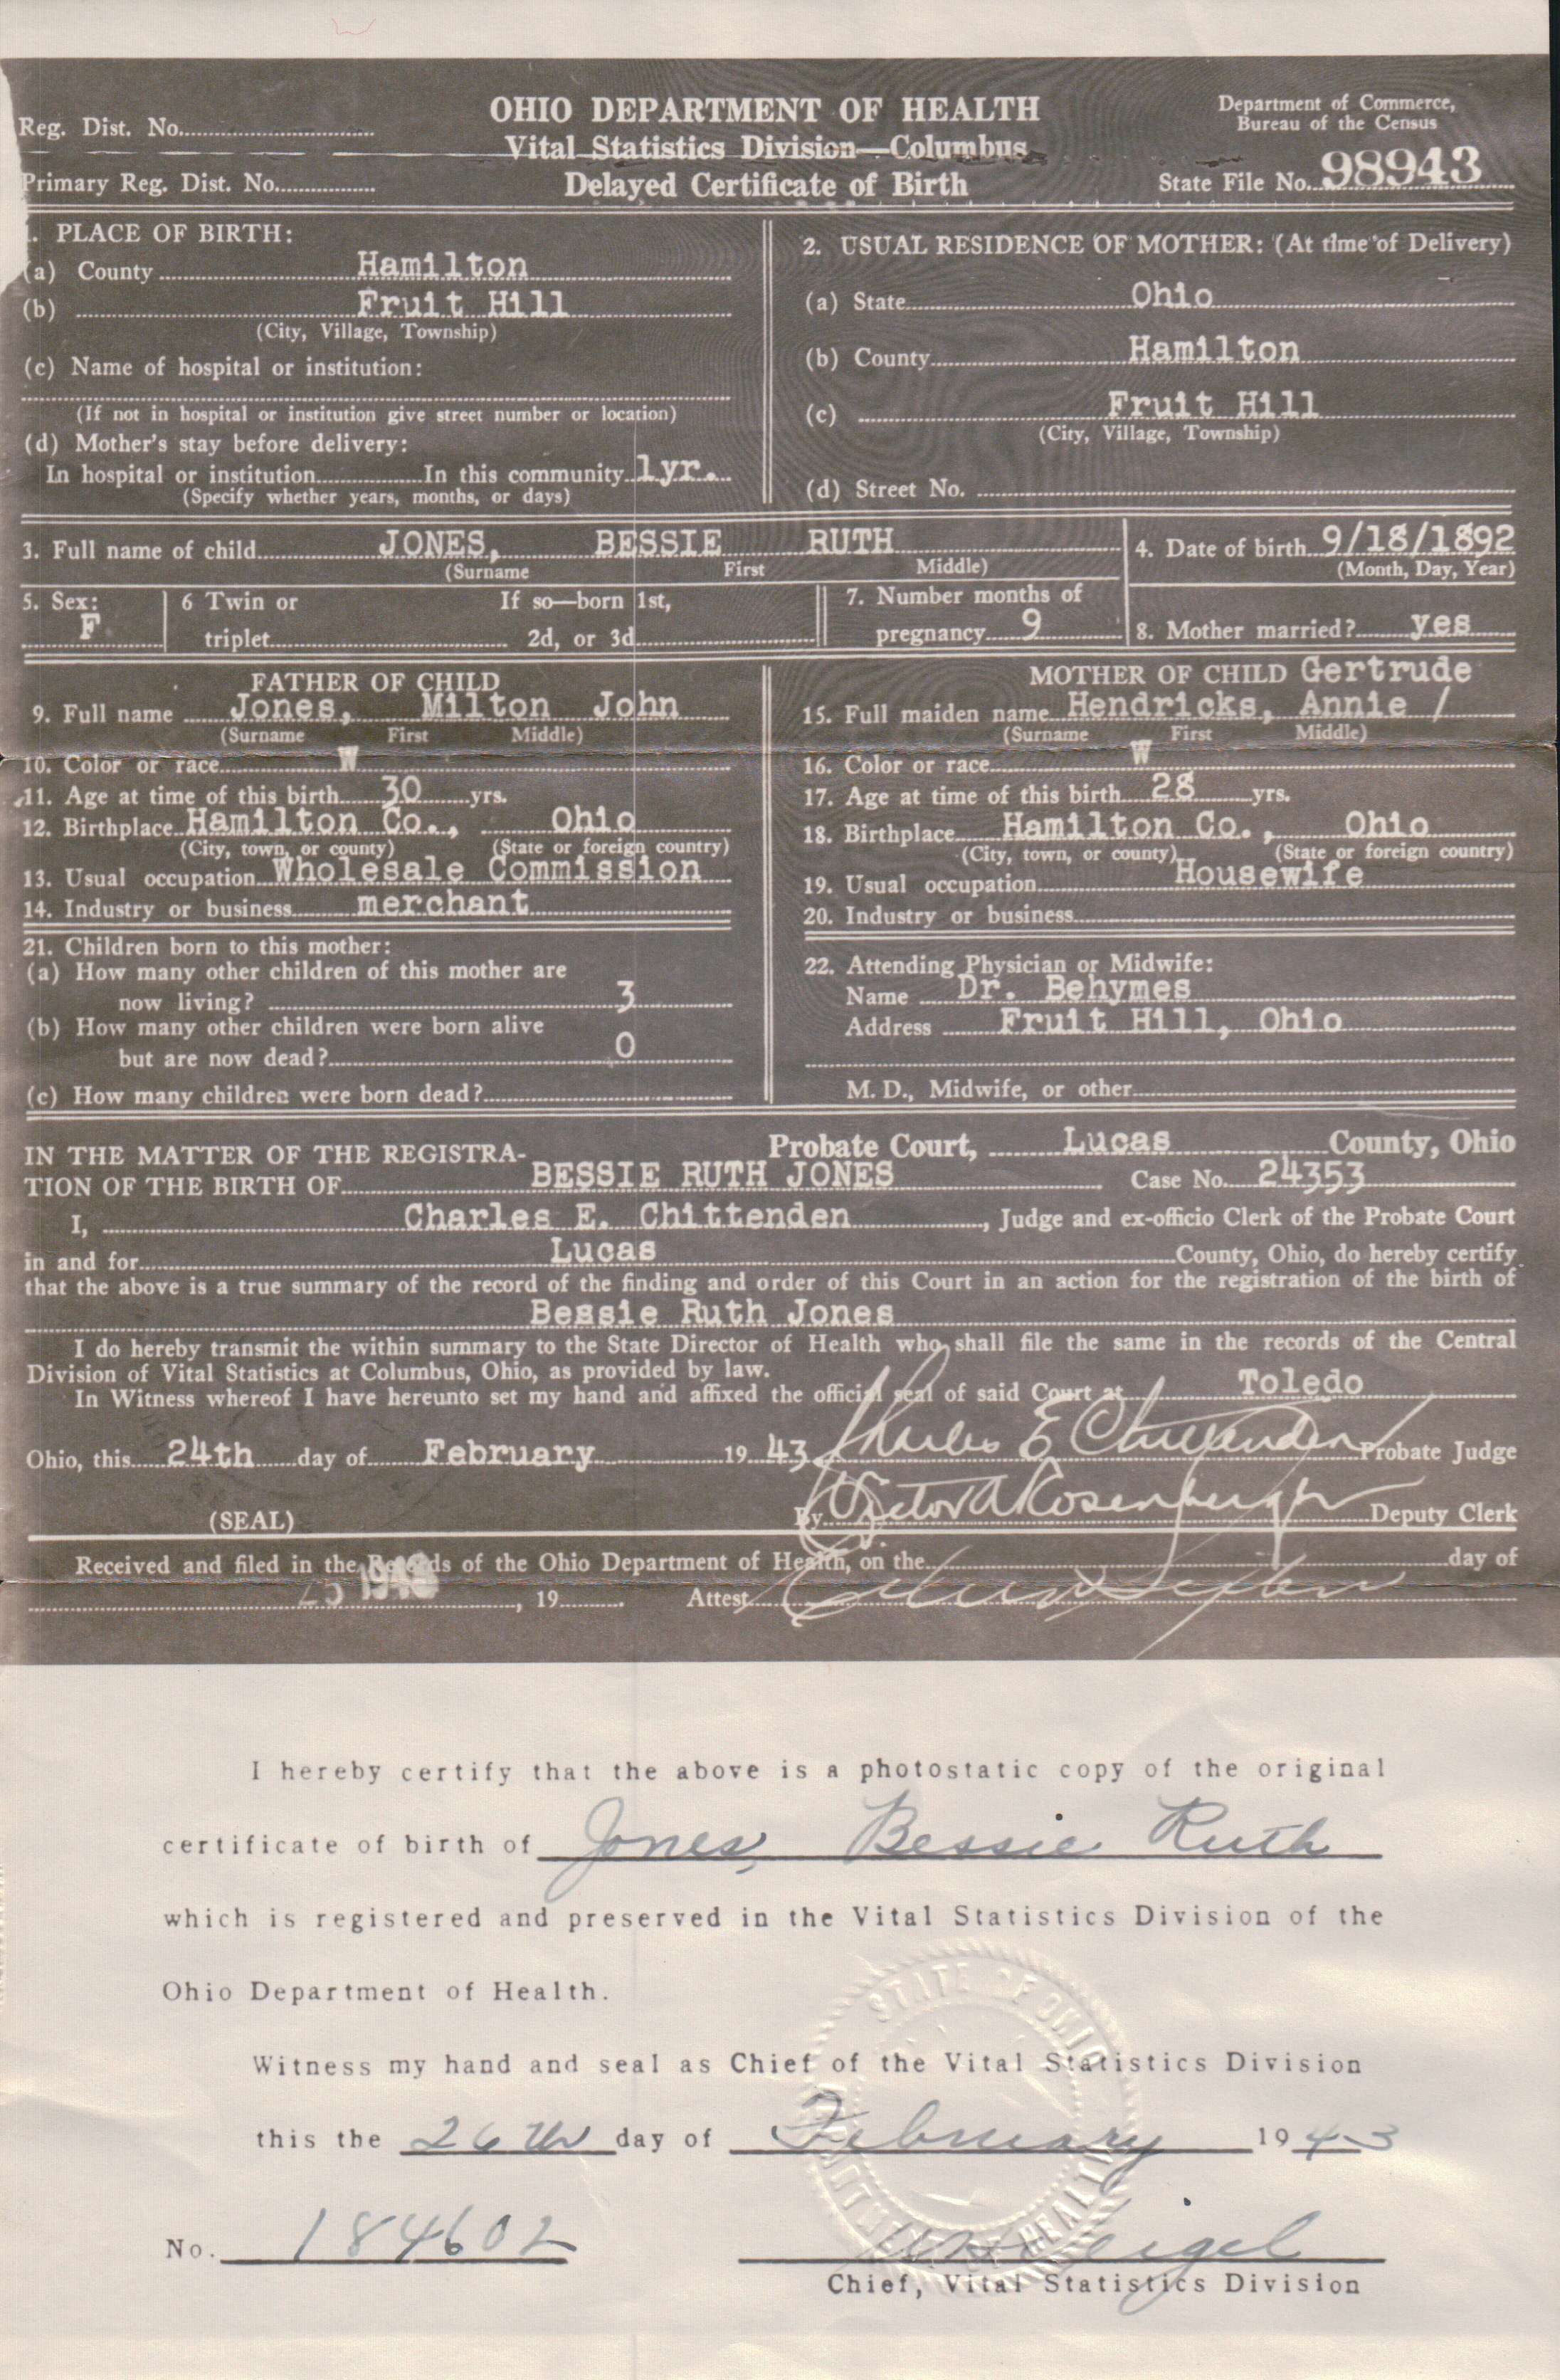 OHIO DEPARTMENT OF HEALTH
Vital Statistics Division—Columbus
Delayed Certificate of Birth
Reg. Dist. No.
Primary Reg. Dist. No.
Department of Commerce,
Bureau of the Census
State File No. 98943
1. PLACE OF BIRTH:
(a) County Hamilton
(b) Fruit Hill
(City, Village, Township)
(c) Name of hospital or institution:
(If not in hospital or institution give street number or location)
(d) Mother's stay before delivery:
In hospital or institution In this community 1yr.
(Specify whether years, months, or days)
2. USUAL RESIDENCE OF MOTHER: (At time of Delivery)
(a) State Ohio
(b) County Hamilton
(c) Fruit Hill
(City, Village, Township)
(d) Street No.
3. Full name of child JONES, BESSIE RUTH
(Surname First Middle)
4. Date of birth 9/18/1892
(Month, Day, Year)
5. Sex:
F
6 Twin or If so—born 1st,
triplet 2d, or 3d
7. Number months of
pregnancy 9
8. Mother married? yes
FATHER OF CHILD
9. Full name Jones, Milton John
(Surname First Middle)
10. Color or race W
11. Age at time of this birth 30 yrs.
12. Birthplace Hamilton Co., Ohio
(City, town, or county) (State or foreign country)
13. Usual occupation Wholesale Commission
14. Industry or business merchant
MOTHER OF CHILD Gertrude
15. Full maiden name Hendricks, Annie /
(Surname First Middle)
16. Color or race W
17. Age at time of this birth 28 yrs.
18. Birthplace Hamilton Co., Ohio
(City, town, or county) (State or foreign country)
19. Usual occupation Housewife
20. Industry or business
21. Children born to this mother:
(a) How many other children of this mother are
now living? 3
(b) How many other children were born alive
but are now dead? 0
(c) How many children were born dead?
22. Attending Physician or Midwife:
Name Dr. Behymes
Address Fruit Hill, Ohio
M. D., Midwife, or other
Probate Court, Lucas County, Ohio
IN THE MATTER OF THE REGISTRA-
TION OF THE BIRTH OF BESSIE RUTH JONES Case No. 24353
I, Charles E. Chittenden, Judge and ex-officio Clerk of the Probate Court
in and for Lucas County, Ohio, do hereby certify
that the above is a true summary of the record of the finding and order of this Court in an action for the registration of the birth of
Bessie Ruth Jones
I do hereby transmit the within summary to the State Director of Health who shall file the same in the records of the Central
Division of Vital Statistics at Columbus, Ohio, as provided by law.
In Witness whereof I have hereunto set my hand and affixed the official seal of said Court at Toledo
Ohio, this 24th day of February 19 43 Charles E Chittenden Probate Judge
(SEAL) By Victor A Rosenburgh Deputy Clerk
Received and filed in the Records of the Ohio Department of Health, on the day of
25 1943, 19 Attest
I hereby certify that the above is a photostatic copy of the original
certificate of birth of Jones, Bessie Ruth
which is registered and preserved in the Vital Statistics Division of the
Ohio Department of Health.
Witness my hand and seal as Chief of the Vital Statistics Division
this the 26th day of February 19 43
No. 184602
Chief, Vital Statistics Division
STATE OF OHIO